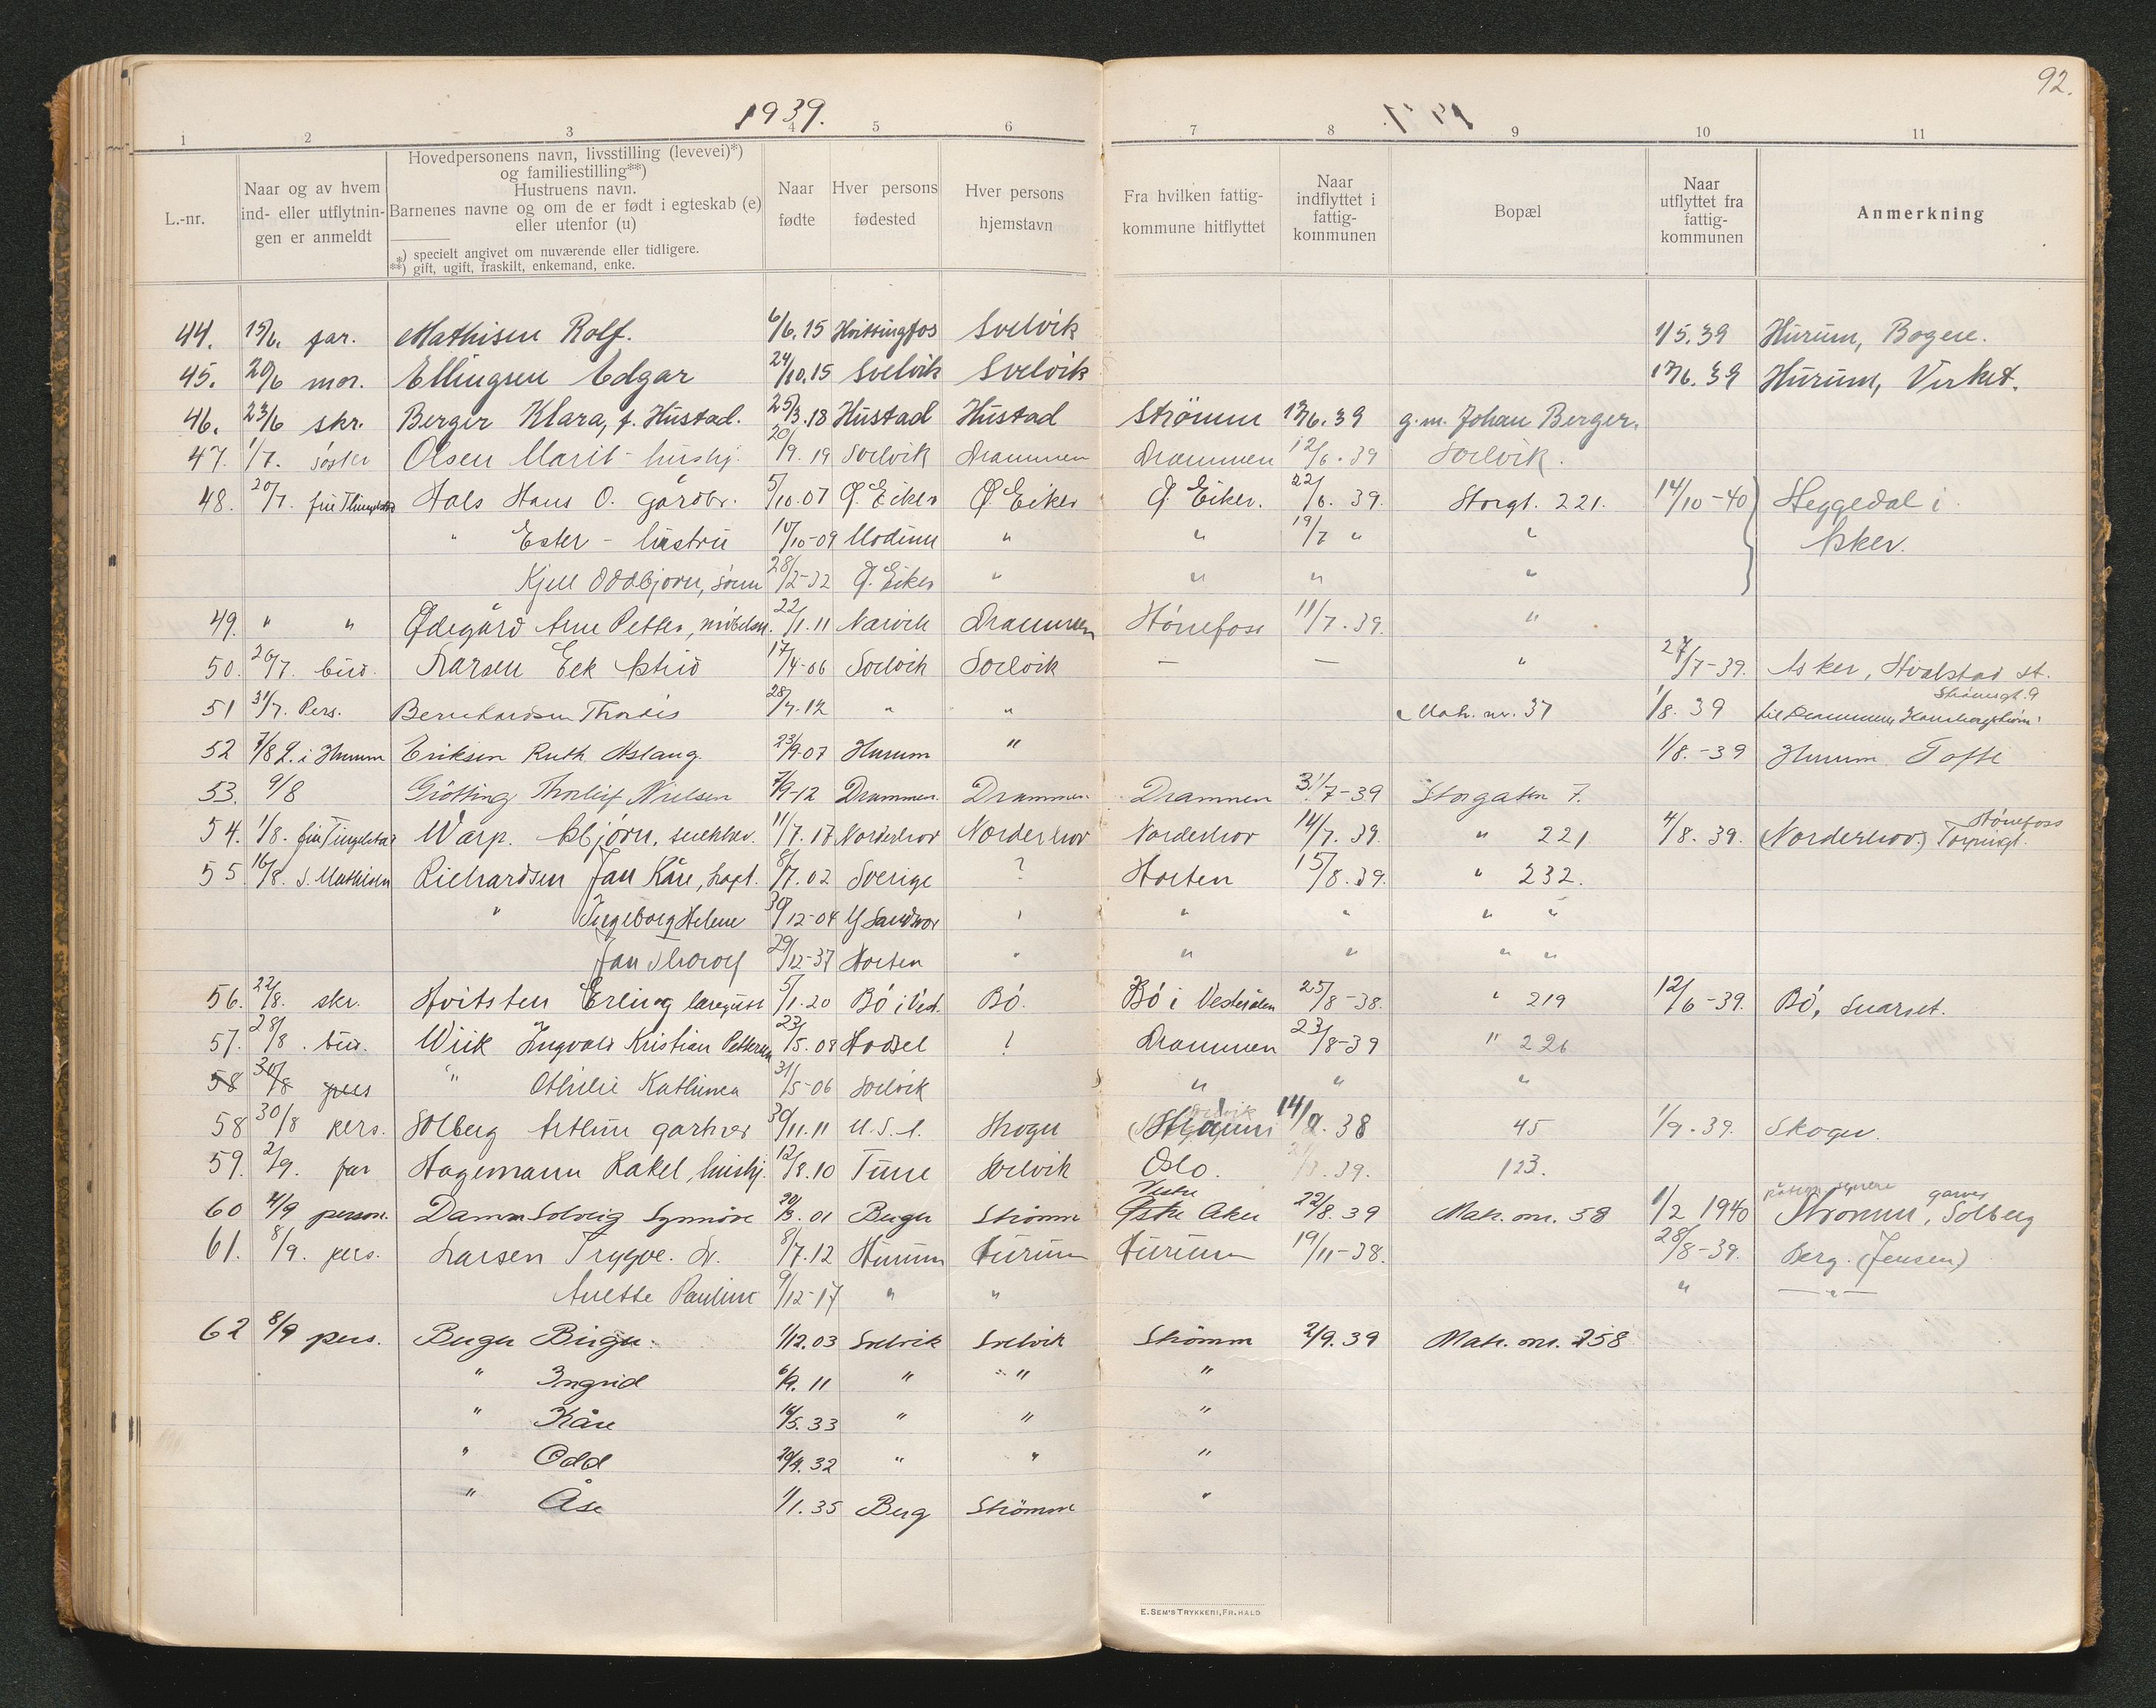 92.
1939.
1 2 3 4 5 6 7 8 9 10 11
L.-nr.
Naar og av hvem ind- eller utflytnin-gen er anmeldt
Hovedpersonens navn, livsstilling (levevei)*)
og familiestilling**)
Hustruens navn.
Barnenes navne og om de er født i egteskab (e)
eller utenfor (u)
*) specielt angivet om nuværende eller tidligere.
**) gift, ugift, fraskilt, enkemand, enke.
Naar fødte
Hver persons fødested
Hver persons hjemstavn
Fra hvilken fattig-kommune hitflyttet
Naar indflyttet i fattig-kommunen
Bopæl
Naar utflyttet fra fattig-kommunen
Anmerkning
44. 15/6. far. Mathisen Rolf. 6/6.15 Hvittingfos Svelvik 1/5.39 Hurum, Bogere.
45. 20/6 mor. Ellingsen Edgar 24/10.15 Svelvik Svelvik 17/6.39 Hurum, Virket.
46. 23/6 skr. Berger Klara, f. Hustad. 25/3.18 Hustad Hustad Strömm 17/6.39 g.m. Johan Berger.
47. 1/7. søster Olsen Marit - hushj. 20/9.19 Svelvik Drammen Drammen 12/6.39 Svelvik.
48. 20/7. Hals Hans O. gårdbr. 5/10.07 Ø. Eiker Ø. Eiker Ø. Eiker. 22/6.39. Storgt. 221. 14/10-40 Heggedal i
" Ester - hustru 10/10-09 Modum " " 19/7 " " Asker.
Kjell Oddbjørn, sønn 28/2-32 Ø. Eiker " " " "
49. " " Ødegård Arne Petter, 22/1.11 Narvik Drammen Hønefoss 11/7.39. "
50. 26/7. bud. Larsen Eek Astrid 17/4-06 Svelvik Svelvik — — " 27/7-39. Asker, Hvalstad st.
51 31/7. Pers. Bernhardsen Thordis 28/7.12 " " Matr. nr. 37 1/8.39 til Drammen Strömsgt. 9
52 7/8 L. i Hurum Eriksen Ruth Aslaug 23/9-07 Hurum " 1/8.-39 Hurum Tofte
53. 9/8 Grötting Thorleif Nielsen 7/9-12 Drammen Drammen Drammen 31/7-39 Storgaten 7.
54. 1/8. Warp. Asbjørn, snekker. 11/7.17 Norderhov Norderhov Norderhov 14/7.39. " 221 4/8.39. (Norderhov) Hønefoss
55. 16/8. S. Mathisen Richardsen Jan Kåre, kapt. 8/7.02 Sverige ? Horten 15/8.39. " 232.
" Ingeborg Helene 30/12-04 " " " "
Jan Thorolf 29/12-37 Horten " " " " "
56. 22/8. skr. Hvitsten Erling 5/1.20 Bö i Vest. Bö. Bö i Vesterålen 25/8-38. " 219 12/6-39. Bö,
57. 28/8. bud. Wiik Ingvald Kristian Pettersen 23/5.08 Hadsel ? Drammen 23/8-39 " 226
58 30/8 pers " Othilie Kathinea 31/5-06 Svelvik " " "
58 30/8 pers. Solberg Arthur gartner 30/11.11 U.S.A. Skoger 14/9.38 45 1/9.39. Skoger.
59. 2/9. far Hagemann Rakel, hushj. 12/8.10 Tune Svelvik Oslo. 39. 123.
60 4/9 person. Damm Solveig Synnöve 20/3.01 Berger Strömm Vestre Aker 22/8.39 Matr. nr. 58 1/2 1940 Strømm, Solberg
61. 8/9. pers. Larsen Trygve. 8/7.12 Hurum Hurum Hurum 19/11-38. 28/8-39. Berg. (Jensen)
Anette Pauline 9/12-17 " " " —"—
62 8/9 pers. Berger Birger. 1/12.03 Svelvik Svelvik Strömm 2/9.39 Matr. nr. 258
" Ingrid 6/9.11 " " "
" Kåre 14/5.33 " " "
" Odd 20/4.32 " " "
" Åse 1/1.35 Berg Strömm "
E. SEM'S TRYKKERI, FR.HALD